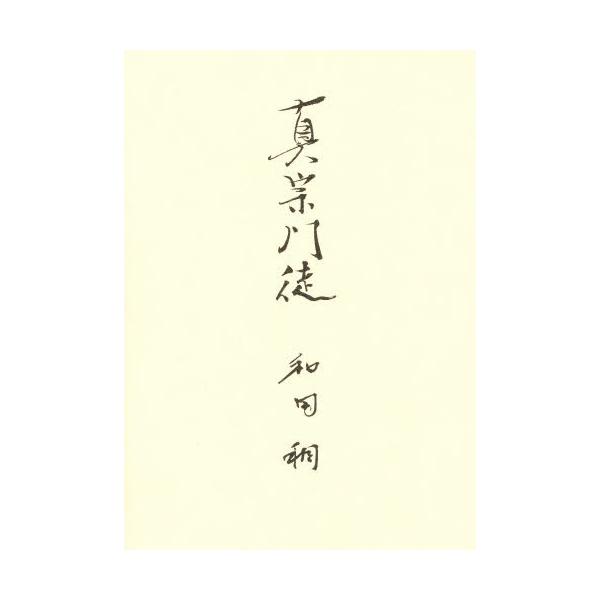 真宗門徒
和田稠